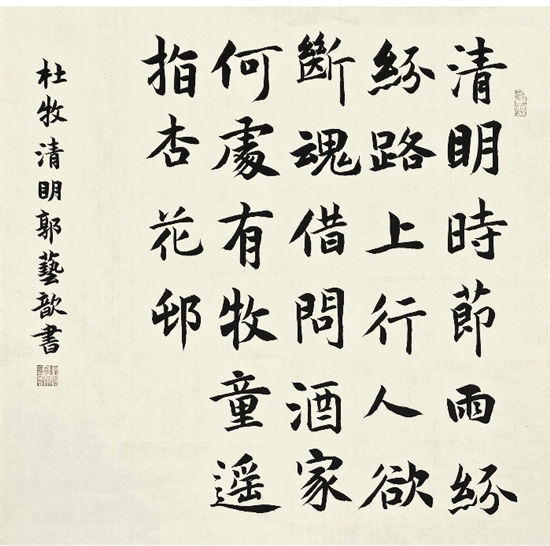 清明時節雨紛
紛路上行人欲
斷魂借問酒家
何處有牧童遙
指杏花邨
杜牧清明郭藝歆書